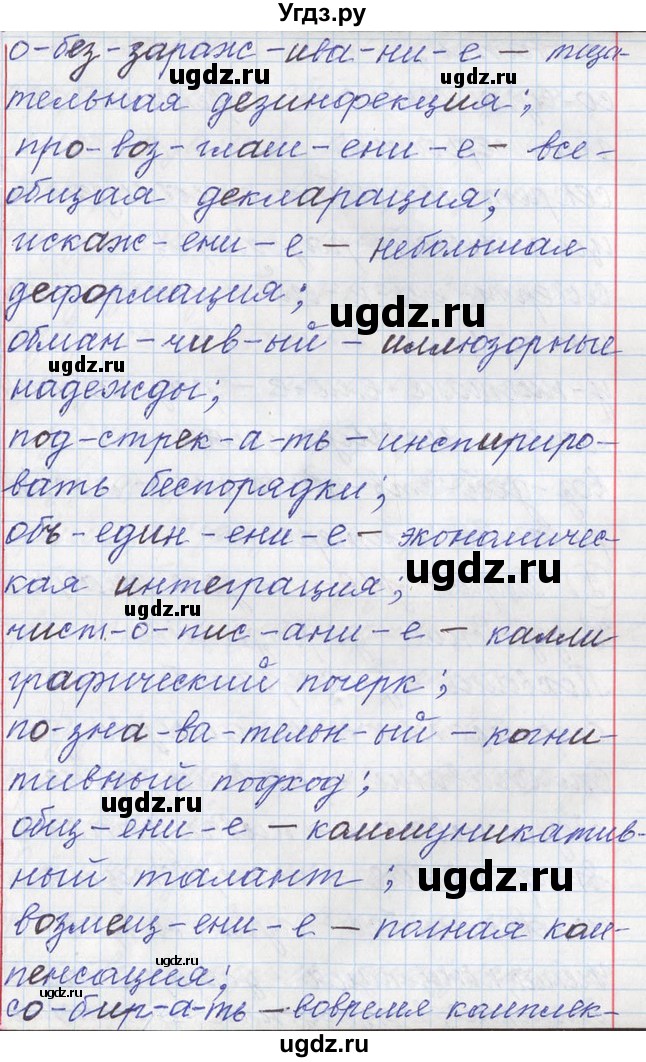 Угдз.ру
о-без-зараж-ива-ни-е — тща-
тельная дезинфекция;
про-воз-глаш-ени-е — все-
общая декларация;
искаж-ени-е — небольшая
деформация;
обман-чив-ый — иллюзорные
надежды;
под-стрек-а-ть — инспириро-
вать беспорядки;
объ-един-ени-е — экономичес-
кая интеграция;
чист-о-пис-ани-е — калли
графический почерк;
по-зна-ва-тельн-ый — когни-
тивный подход;
общ-ени-е — коммуникатив-
ный талант;
возмещ-ени-е — полная ком-
пенсация;
со-бир-а-ть — вовремя комплек-
ugdz.ru
ugdz.ru
ugdz.ru
ugdz.ru
ugdz.ru
ugdz.ru
ugdz.ru
ugdz.ru
ugdz.ru
ugdz.ru
ugdz.ru